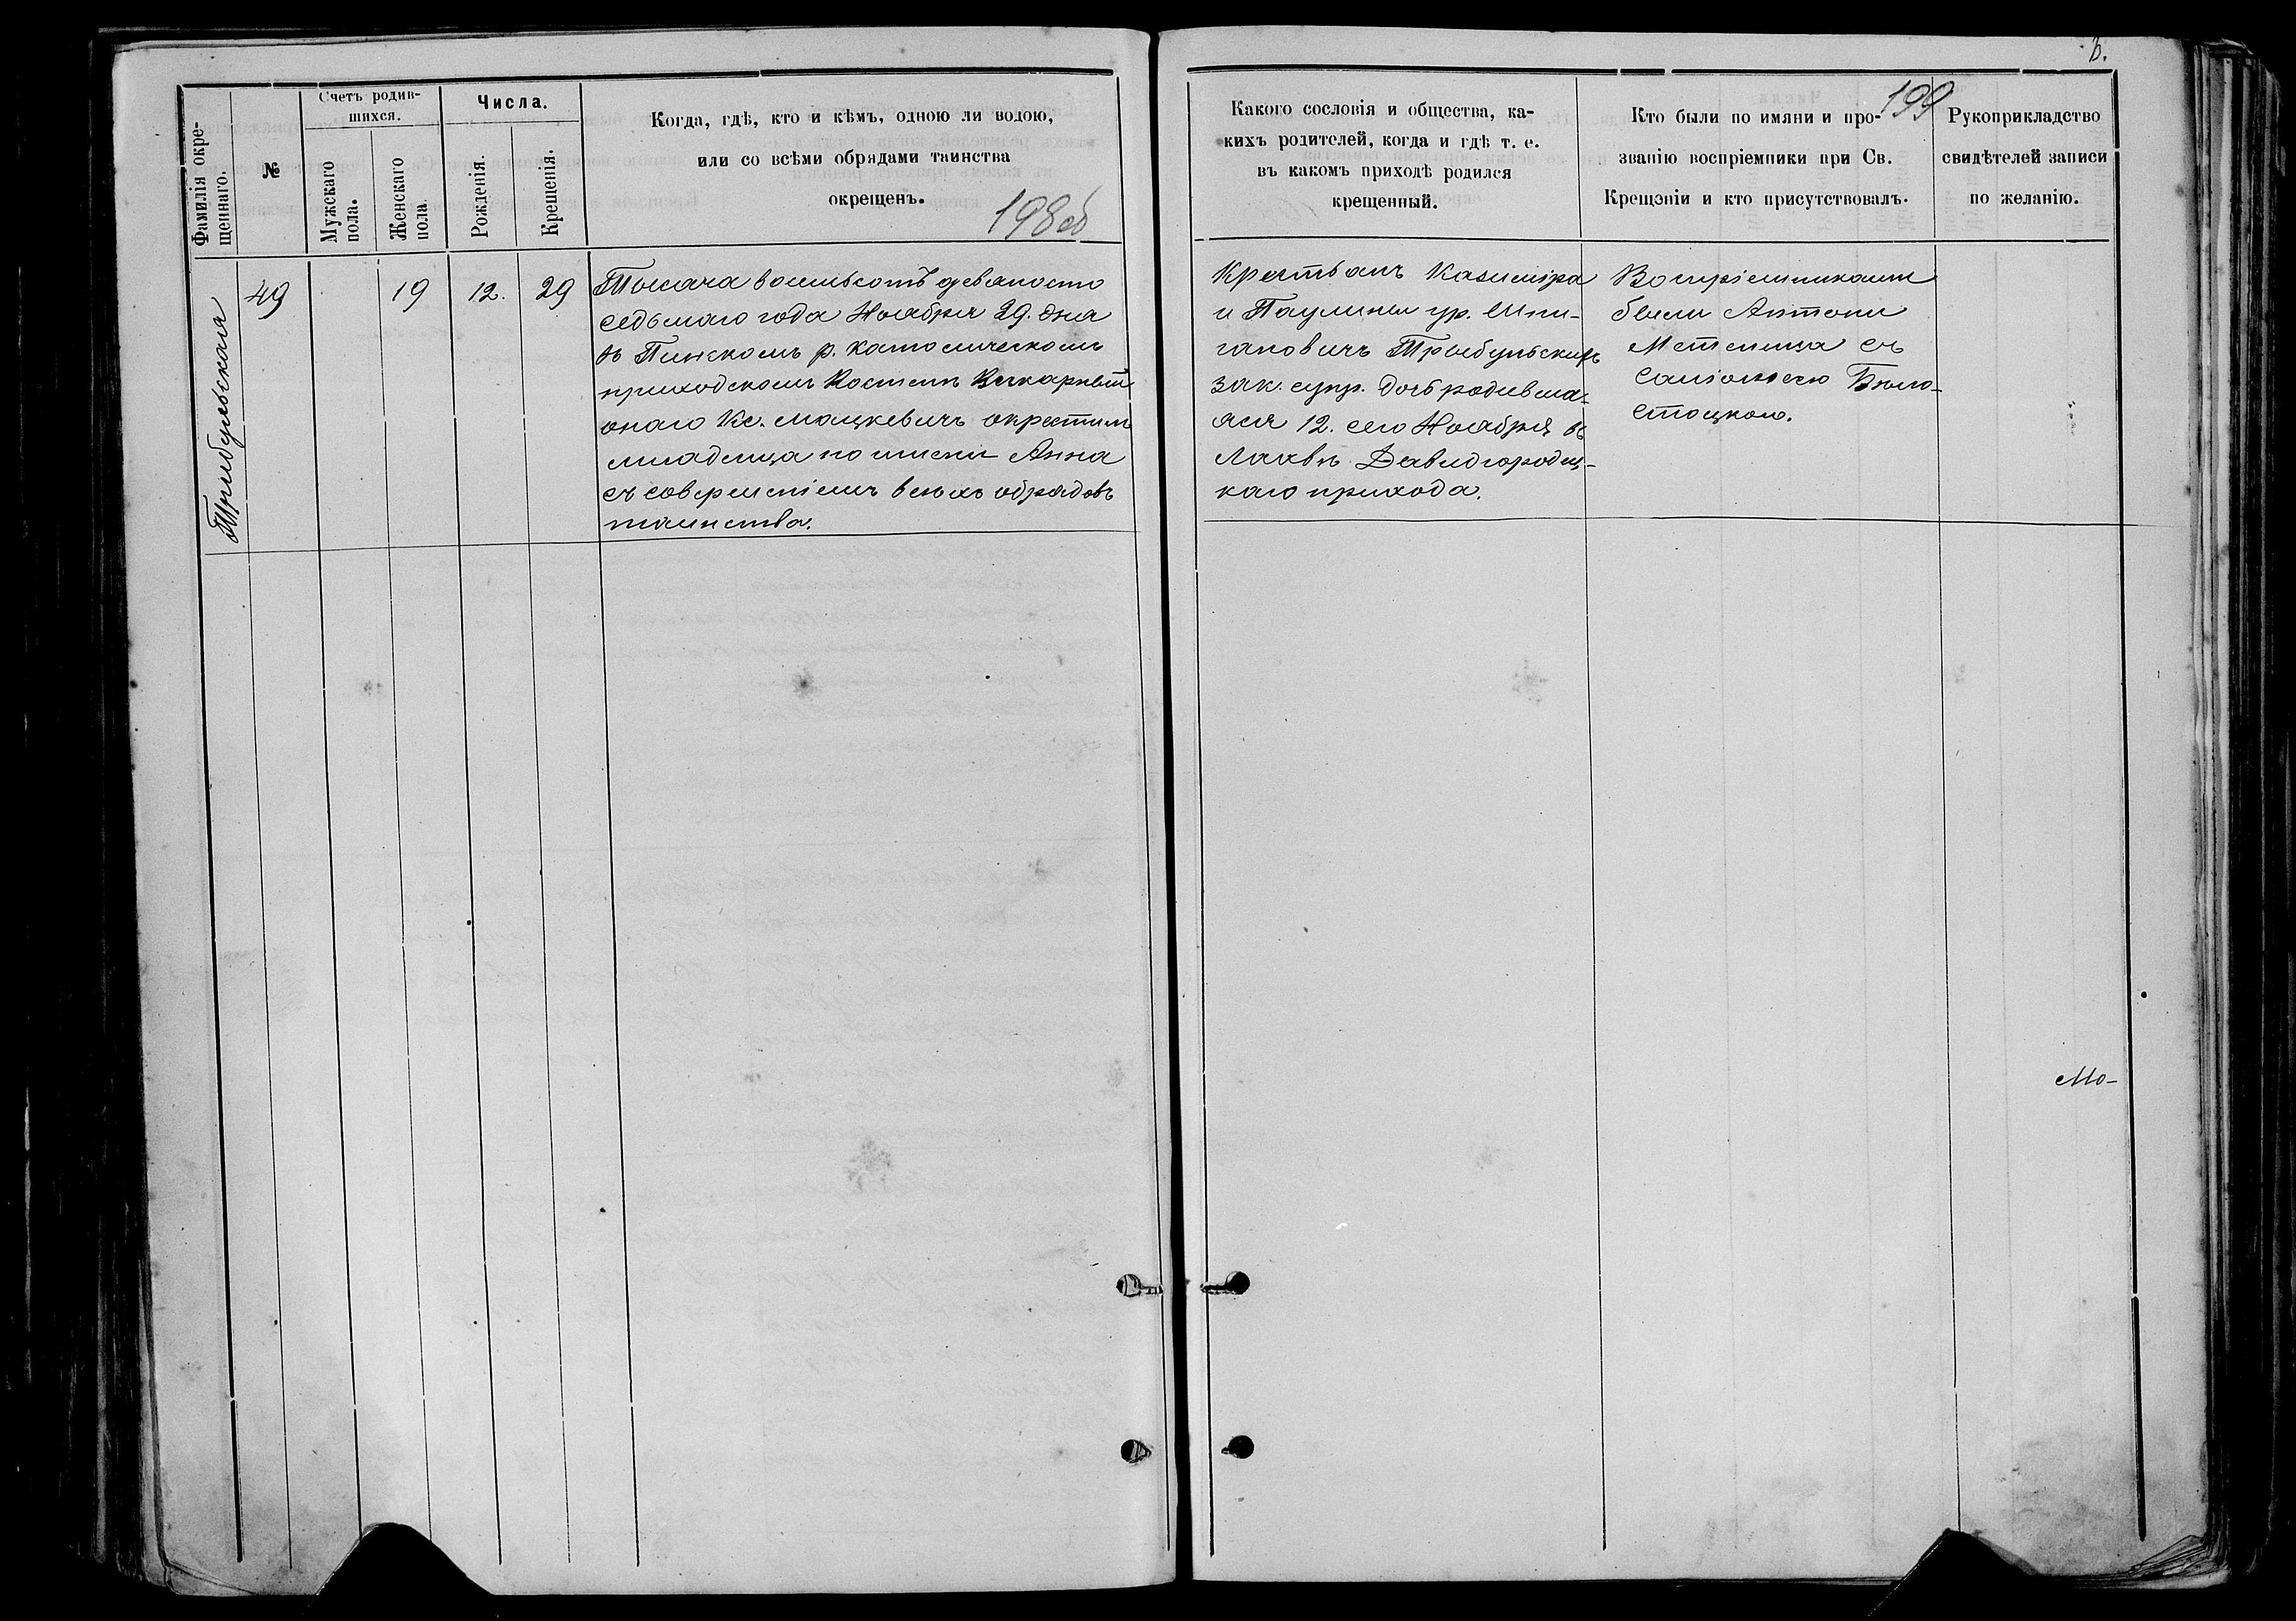 Фамилія окре-
щеннаго.
№
Счетъ родив-
шихся.
Мужскаго
пола.
Женскаго
пола.
Числа.
Рожденія.
Крещенія.
Когда, гдѣ, кто и кѣмъ, одною ли водою,
или со всѣми обрядами таинства
окрещенъ.
198об
Трибульская
49
19
12.
29
Тысяча восемьсотъ девяносто
седьмаго года Ноября 29. дня
въ Пинскомъ р. католическомъ
приходскомъ Костелѣ Викарный
онаго Кс. Мацкевичъ окрестилъ
младенца по имени Анна
съ совершеніемъ всѣхъ обрядовъ
таинства.
Б.
199
Какого сословія и общества, ка-
кихъ родителей, когда и гдѣ т. е.
въ какомъ приходѣ родился
крещенный.
Кто были по имяни и про-
званію воспріемники при Св.
Крещэніи и кто присутствовалъ.
Рукоприкладство
свидѣтелей записи
по желанію.
Крестьянъ Казиміра
и Паулины ур. Шпи-
гановичъ Трыбульскихъ
зак. супр. дочь родивша-
яся 12. сего Ноября въ
Лахвѣ Давидгородец-
каго прихода.
Воспріемниками
были Антони
съ
Бѣло-
стоцкою.
Мо-